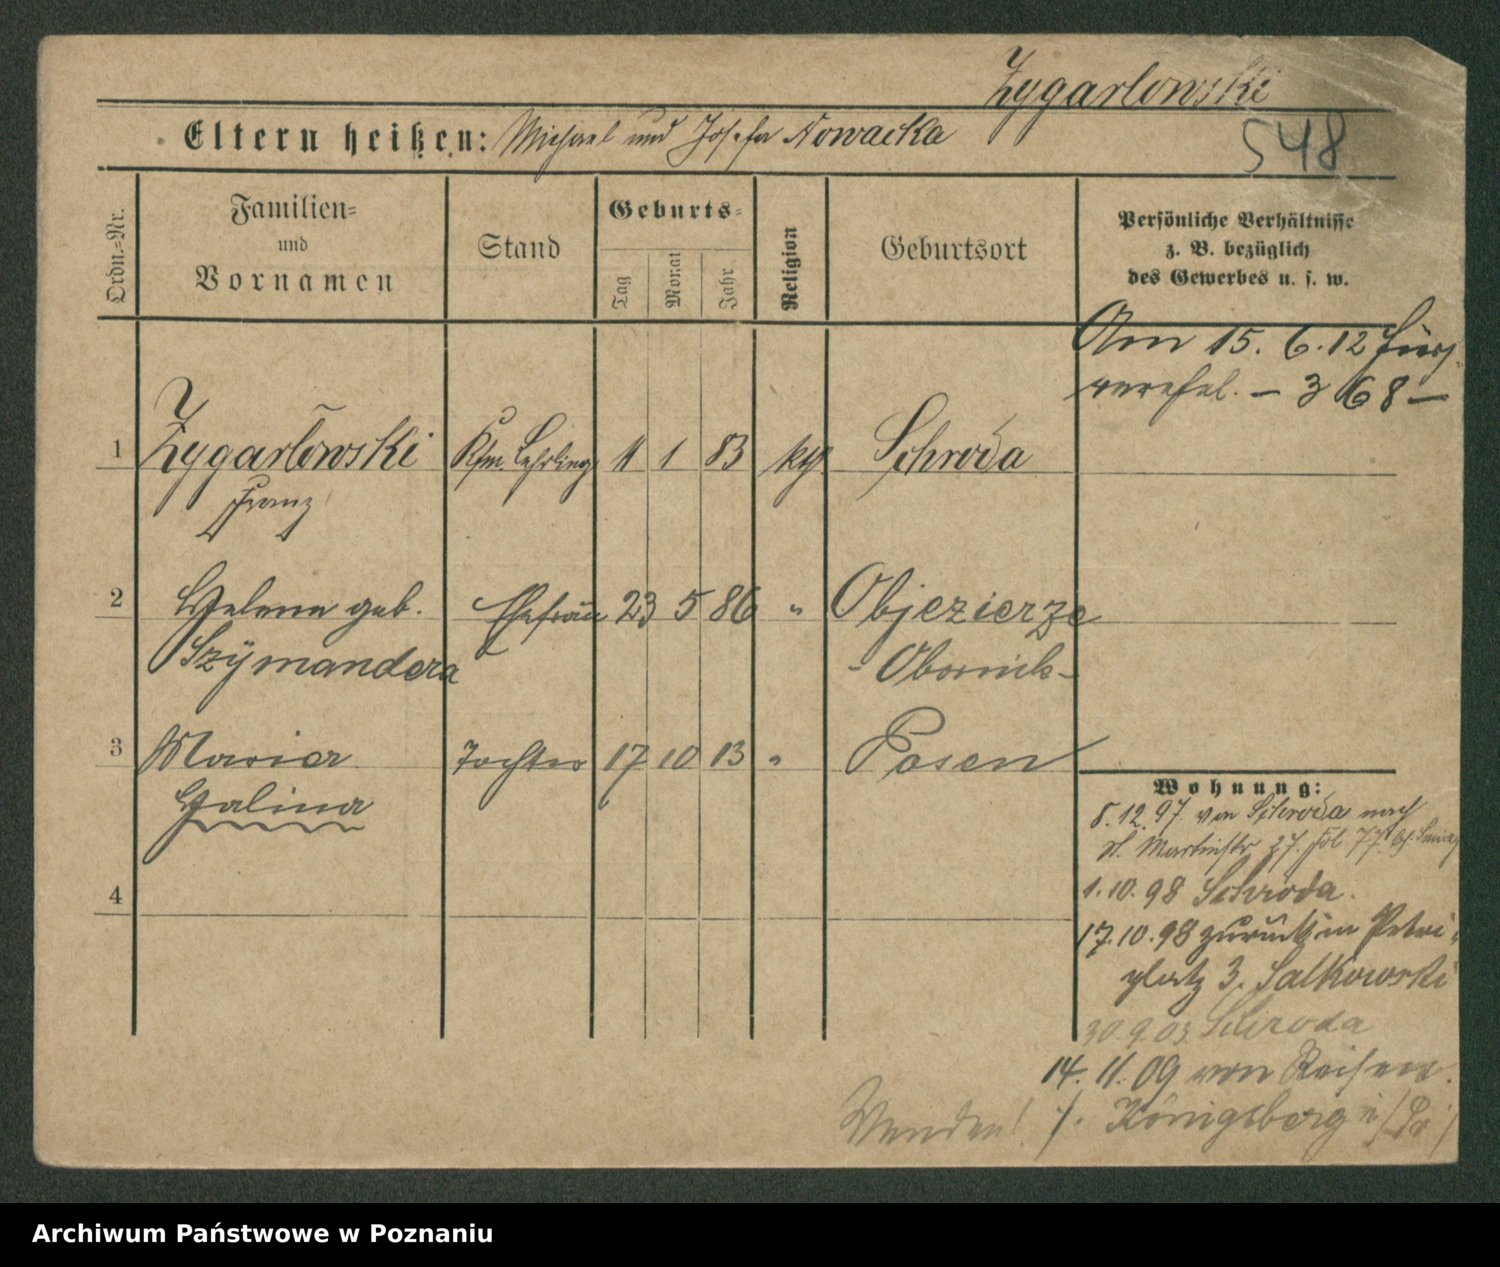 Zygarlowski
548
Eltern heißen: Michael und Josefa Nowacka
Ordn.=Nr.
Familien=
und
Vornamen
Stand
Geburts=
Tag
Monat
Jahr
Religion
Geburtsort
Persönliche Verhältnisse
z. B. bezüglich
des Gewerbes u. s. w.
Am 15. 6. 12
– 368 –
1 Zygarlowski Kfm. Lehrling 11 1 83 kth Schroda
Franz
2 Helena geb. Ehefrau 23 5 86 " Objezierze
Szymandera - Obornik -
3 Maria Tochter 17 10 13 " Posen
Halina
4
Wohnung:
8.12.97. von Schroda nach
St. Martinstr. 27. Fol 77.
1.10.98 Schroda.
17.10.98 zurück in Petri=
platz 3. Salkowski
30.9.03 Schroda
14. 11. 09 von Reisen.
Wenden! ./. Königsberg i/Pr
Archiwum Państwowe w Poznaniu